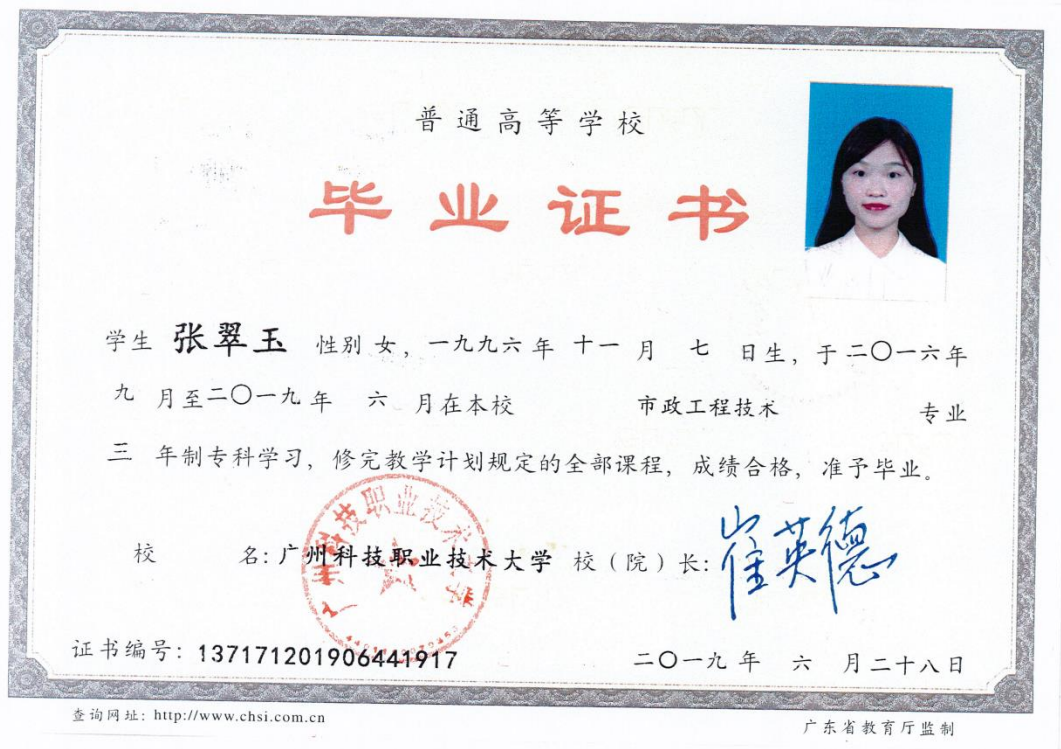 普通高等学校
毕业证书
学生 张翠玉 性别 女，一九九六 年 十一 月 七 日生，于 二〇一六 年
九 月至 二〇一九 年 六 月在本校 市政工程技术 专业
三 年制专科学习，修完教学计划规定的全部课程，成绩合格，准予毕业。
广州科技职业技术大学
校 名：广州科技职业技术大学 校（院）长：崔英德
证书编号：137171201906441917 二〇一九 年 六 月二十八日
查询网址：http://www.chsi.com.cn 广东省教育厅监制